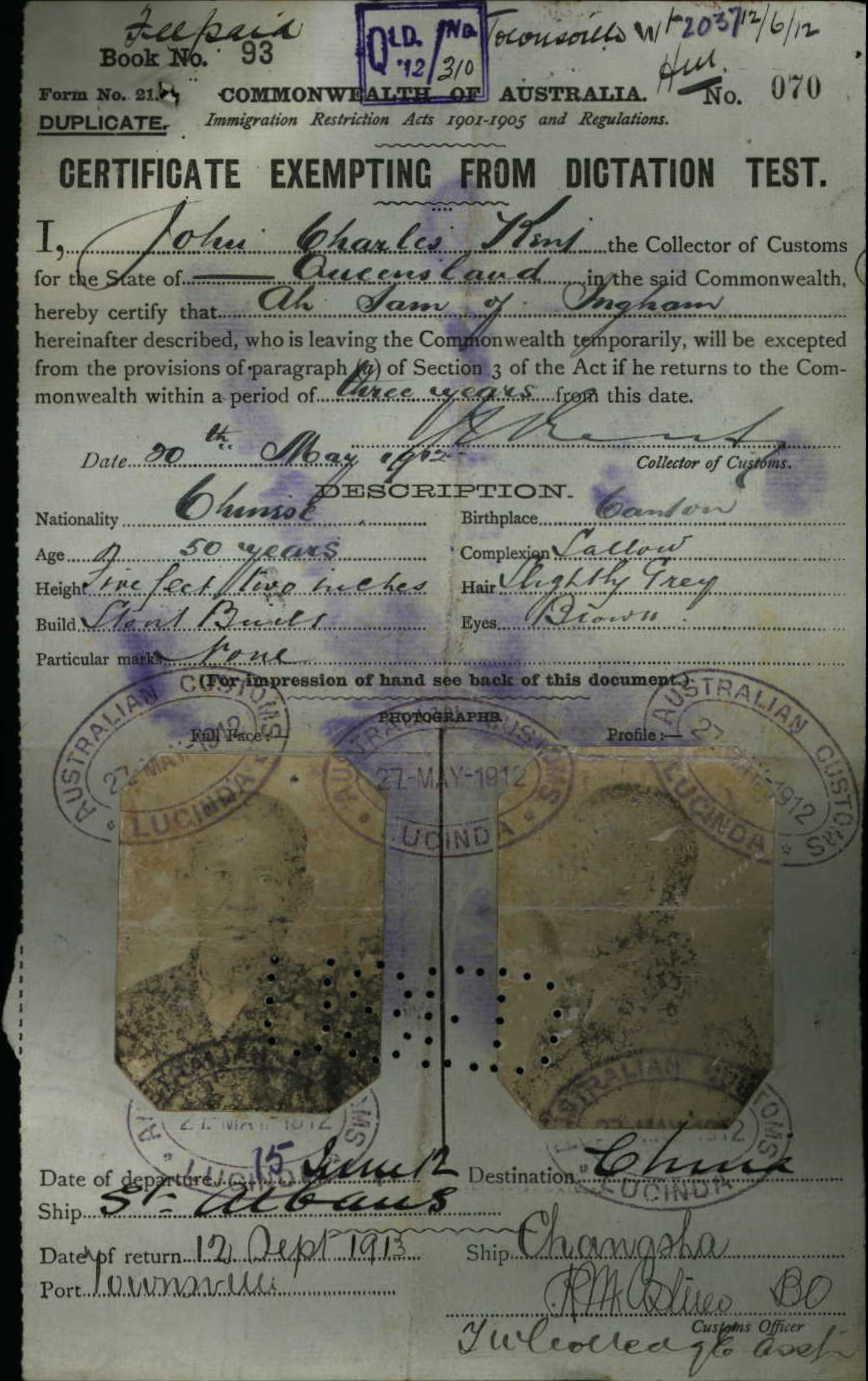 Feepaid
Book No. 93
QLD. No.
'12/310
Townsville 12/6/12
Form No. 21.
COMMONWEALTH OF AUSTRALIA.
No. 070
DUPLICATE.
Immigration Restriction Acts 1901-1905 and Regulations.
CERTIFICATE EXEMPTING FROM DICTATION TEST.
I, John Charles Kent the Collector of Customs
for the State of Queensland in the said Commonwealth,
hereby certify that Ah Sam of Ingham
hereinafter described, who is leaving the Commonwealth temporarily, will be excepted
from the provisions of paragraph (a) of Section 3 of the Act if he returns to the Com-
monwealth within a period of three years from this date.
Date 20th May 1912
Kent
Collector of Customs.
DESCRIPTION.
Nationality Chinese
Birthplace Canton
Age 50 years
Complexion Sallow
Height Five feet two inches
Hair Slightly Grey
Build Stout Build
Eyes Brown
Particular marks None
(For Impression of hand see back of this document.)
PHOTOGRAPHS.
Full Face:—
Profile:—
AUSTRALIAN CUSTOMS
27-MAY-1912
LUCINDA
AUSTRALIAN CUSTOMS
27-MAY-1912
LUCINDA
AUSTRALIAN CUSTOMS
27-MAY-1912
LUCINDA
AUSTRALIAN CUSTOMS
27-MAY-1912
LUCINDA
AUSTRALIAN CUSTOMS
27-MAY-1912
LUCINDA
Date of departure 15 June 12
Destination China
Ship St. Albans
Date of return 12 Sept 1913
Ship Changsha
Port Townsville
BO
Customs Officer
Asst